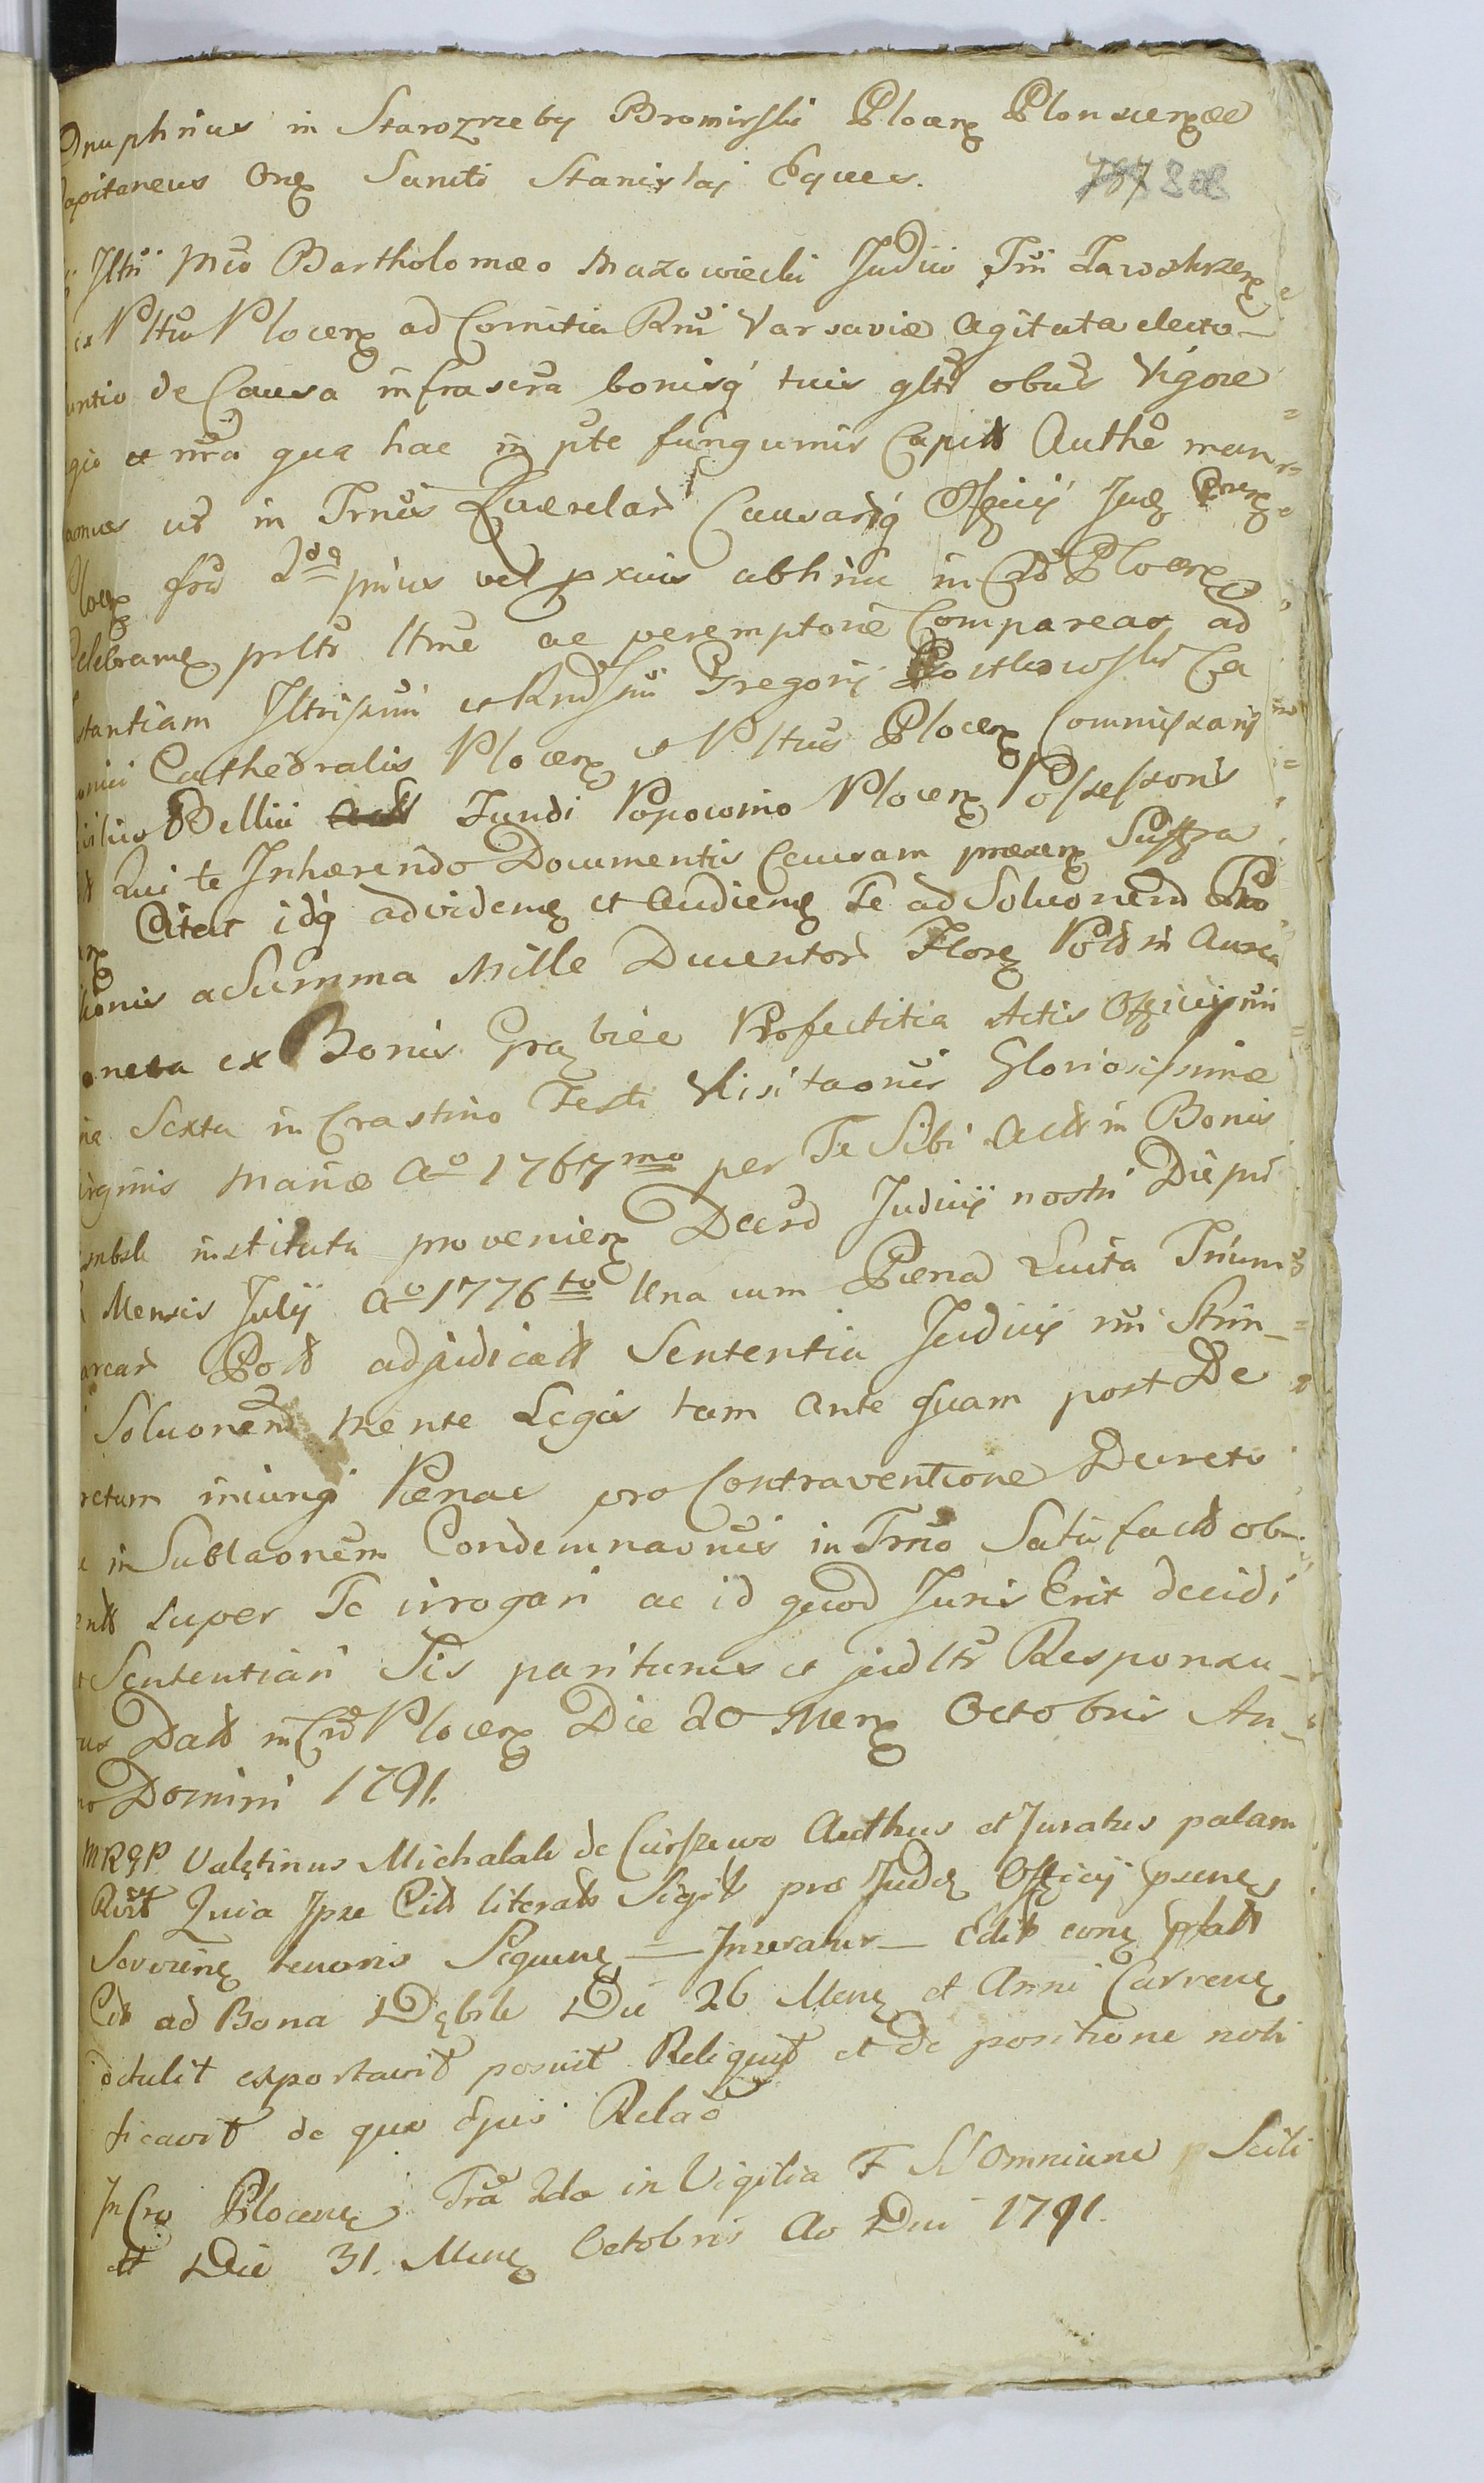 Onuphrius in Starozrzeby Bromirski Plocen Plonscen
apitaneus Ord Sancti Stanislai Eques.
787 308
Iltri Mco Bartholomæo Mazowiecki Judici Tri Zawskrzen
ex Pltu Plocen ad Comitia Rni Varsaviæ agitata electo
untio de Causa infrascra bonisq tuis gltr obus Vigore
gio et nra qua hac in pte fungimur Capit Authe man
amus ut in Trnis Querelar Causarq Officij Jud
Plocen fra 2da prius vel pxius abhinc in Cro Plocen
Celebrand prltr ltme ac peremptorie Compareas ad
stantiam Iltrissimi et Rndssmi Gregorij Ca
onici Cathedralis Plocen et Pltus Plocen Commissarij
Civilico Bellici Fundi Popocomo Plocen Possessoris
Qui te Inhærendo Documentis Causam præsen
Citat idq ad vidend et audiend Te ad Soluonem Pro
isionis a Summa Mille Ducentor Floren Pol in Aurea
oneta ex Bonis Grąbiec Profectitia Actis Officij nri
ria Sexta in Crastino Festi Visitaonis Gloriosissimæ
irginis Mariæ Ao 1767mo per Te Sibi Act in Bonis
embsk instituta provenien Decrd Judicij nostri Die pri
Mensis Julij Ao 1776to Una cum Pæna Luita Trium
arcar Pol adjudicat Sententia Judicij nri Strin
Soluonem Mente Legis tam ante quam post De
retum iniungi Pænas pro Contraventione Decreto
in Sublaonem Condemnaonis in Trno Satisfact ob
ent super Te irrogari ac id quod Juris Erit decidi
Sententiari Sis pariturus et judltr Responsu
us Dat in Cro Plocen Die 20 Mens Octobris An
no Domini 1791.
MRGP. Valętinus Michalak de Ciirszewo Authus et Juratus palam
Rect Quia Ipse Cit literat Sigil pro Jud Officij psene
Servien tenoris Sequen — Inseratur — Edit eond
Cit ad Bona Dębsk Die 26 Mens et Anni Curren
detulit exportavit posuit Reliquit et De positione noti
ficavit de quo Ejus Relao
In Cro Plocen Fra 2da in Vigilia F SS Omnium p Scili
et Die 31. Mens Octobris Ao Dni 1791.